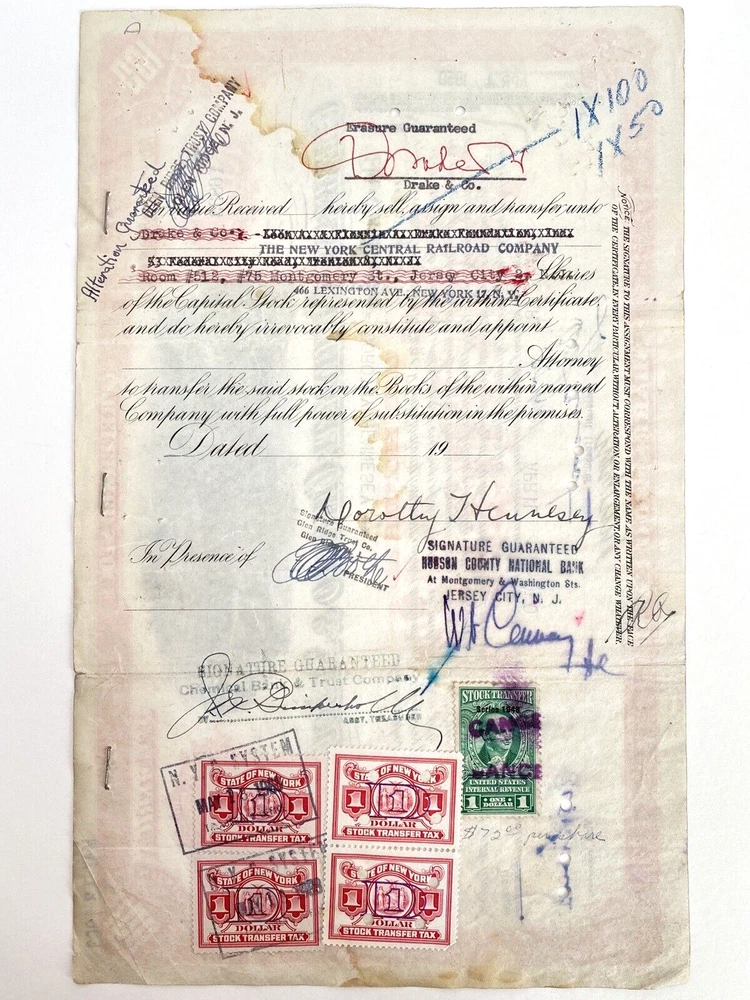 1X100
1X50
Erasure Guaranteed
Drake & Co.
TRUST COMPANY
N. J.
Alteration Guaranteed
For Value Received hereby sell, assign and transfer unto
Drake & Co.
THE NEW YORK CENTRAL RAILROAD COMPANY
Room #512, #75 Montgomery St., Jersey City 2, N.J. Shares
466 LEXINGTON AVE., NEW YORK 17, N. Y.
of the Capital Stock represented by the within Certificate,
and do hereby irrevocably constitute and appoint
Attorney
to transfer the said stock on the Books of the within named
Company with full power of substitution in the premises.
Dated 19
NOTICE, THE SIGNATURE TO THIS ASSIGNMENT MUST CORRESPOND WITH THE NAME AS WRITTEN UPON THE FACE
OF THE CERTIFICATE, IN EVERY PARTICULAR, WITHOUT ALTERATION OR ENLARGEMENT, OR ANY CHANGE WHATEVER.
Dorothy Hennesey
Signature Guaranteed
Glen Ridge Trust Co.
Glen
PRESIDENT
In Presence of
SIGNATURE GUARANTEED
HUDSON COUNTY NATIONAL BANK
At Montgomery & Washington Sts.
JERSEY CITY, N. J.
SIGNATURE GUARANTEED
Chemical Bank & Trust Company
BY
ASST. TREASURER
STOCK TRANSFER
Series 1948
CANCE
CANCE
UNITED STATES
INTERNAL REVENUE
1 ONE DOLLAR 1
$72.00 per share
N. Y. C. SYSTEM
STATE OF NEW YORK
1 1
DOLLAR
STOCK TRANSFER TAX
STATE OF NEW Y
1 1
DOLLAR
STOCK TRANSFER TAX
Y. SYSTEM
STATE OF NEW YORK
1 1
DOLLAR
STOCK TRANSFER TAX
STATE OF NEW YORK
1 1
DOLLAR
STOCK TRANSFER TAX